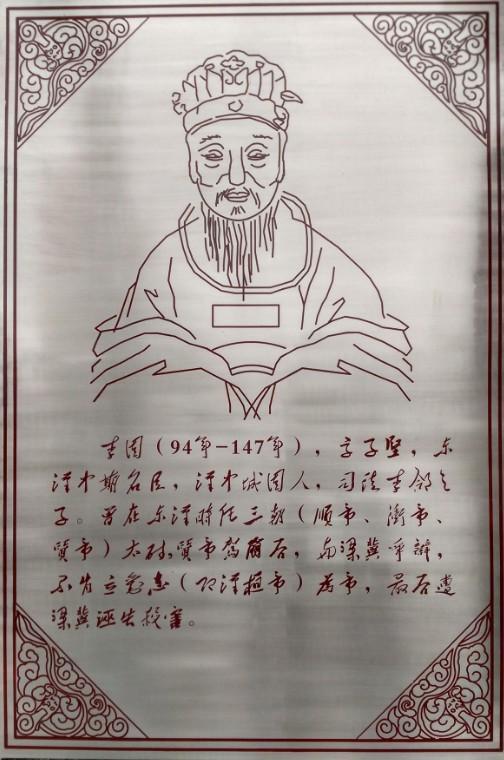 李固（94年-147年），字子坚，东
汉中期名臣，汉中城固人，司徒李郃之
子。曾在东汉时任三朝（顺帝、冲帝、
质帝）太尉，质帝驾崩后，与梁冀争辩，
不肯立刘志（即汉桓帝）为帝，最后遭
梁冀诬告杀害。